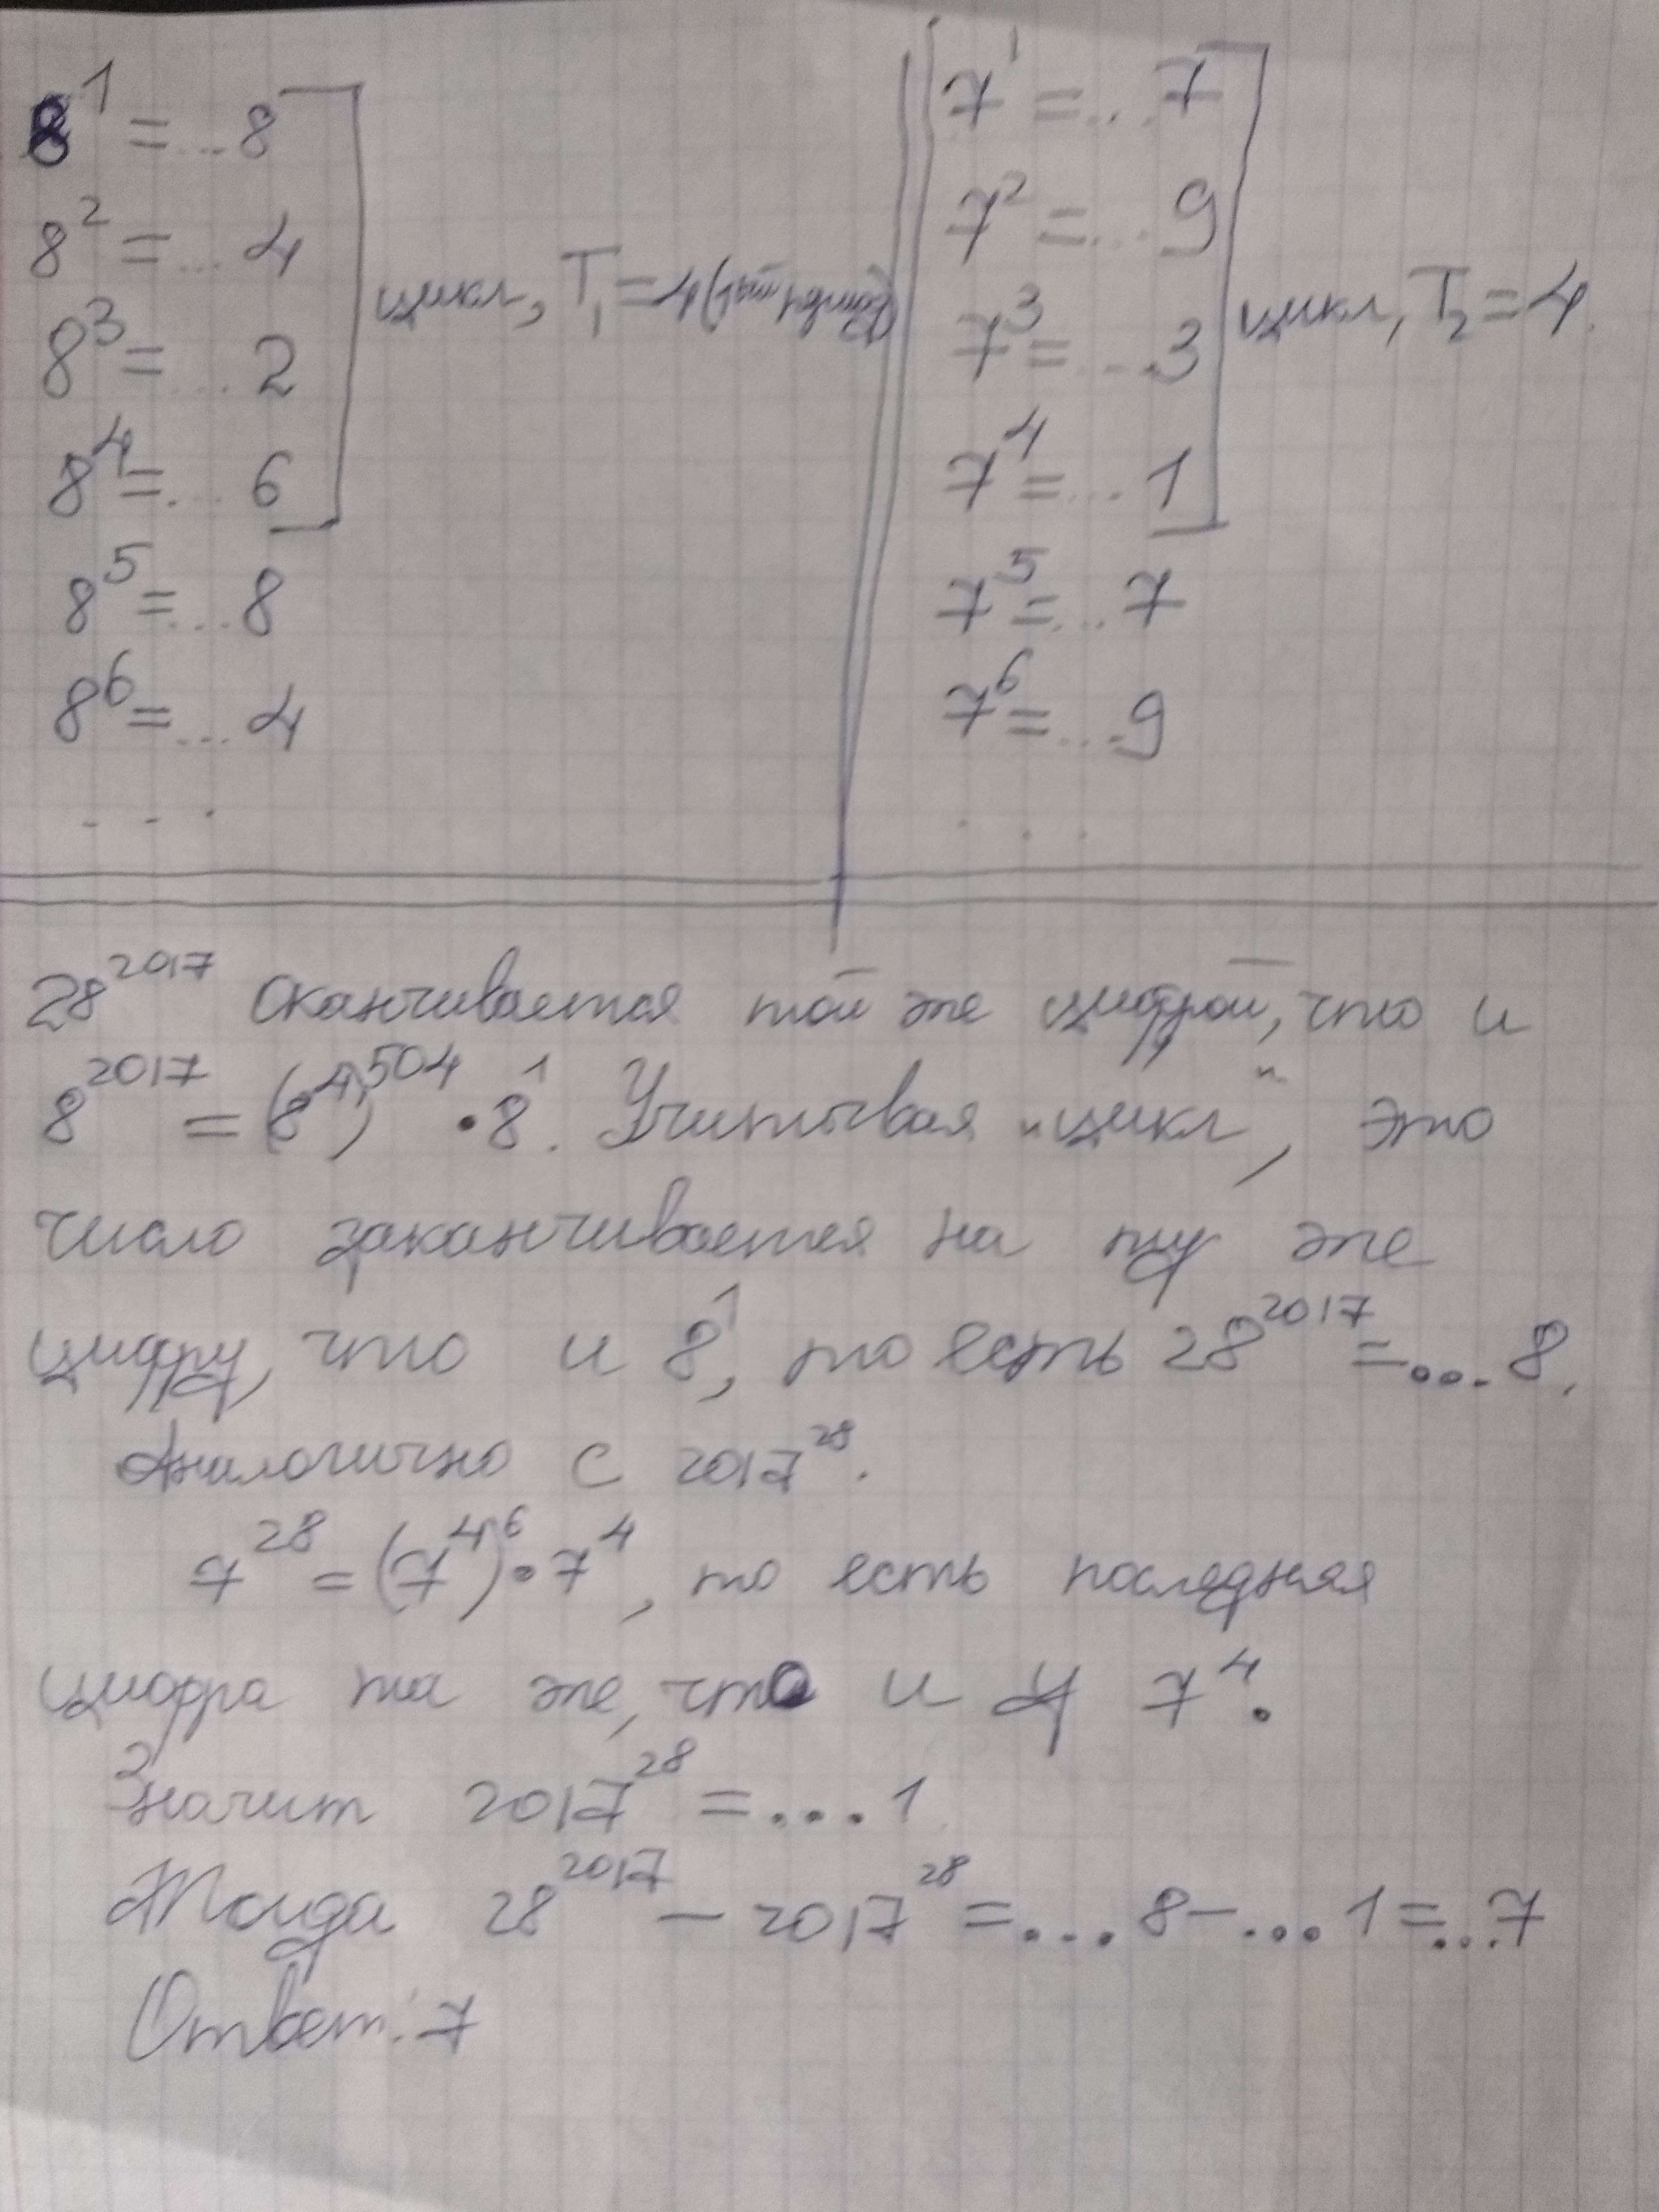 8¹ = ...8
8² = ...4
8³ = ...2
8⁴ = ...6
8⁵ = ...8
8⁶ = ...4
...
цикл, T₁ = 4
7¹ = ...7
7² = ...9
7³ = ...3
7⁴ = ...1
7⁵ = ...7
7⁶ = ...9
...
цикл, T₂ = 4.
28²⁰¹⁷ оканчивается той же цифрой, что и
8²⁰¹⁷ = (8⁴)⁵⁰⁴ • 8¹. Учитывая "цикл", это
число заканчивается на ту же
цифру, что и 8¹, то есть 28²⁰¹⁷ = ...8.
Аналогично с 2017²⁸.
7²⁸ = (7⁴)⁶ • 7⁴, то есть последняя
цифра та же, что и у 7⁴.
Значит 2017²⁸ = ...1.
Тогда 28²⁰¹⁷ − 2017²⁸ = ...8 − ...1 = ...7
Ответ: 7